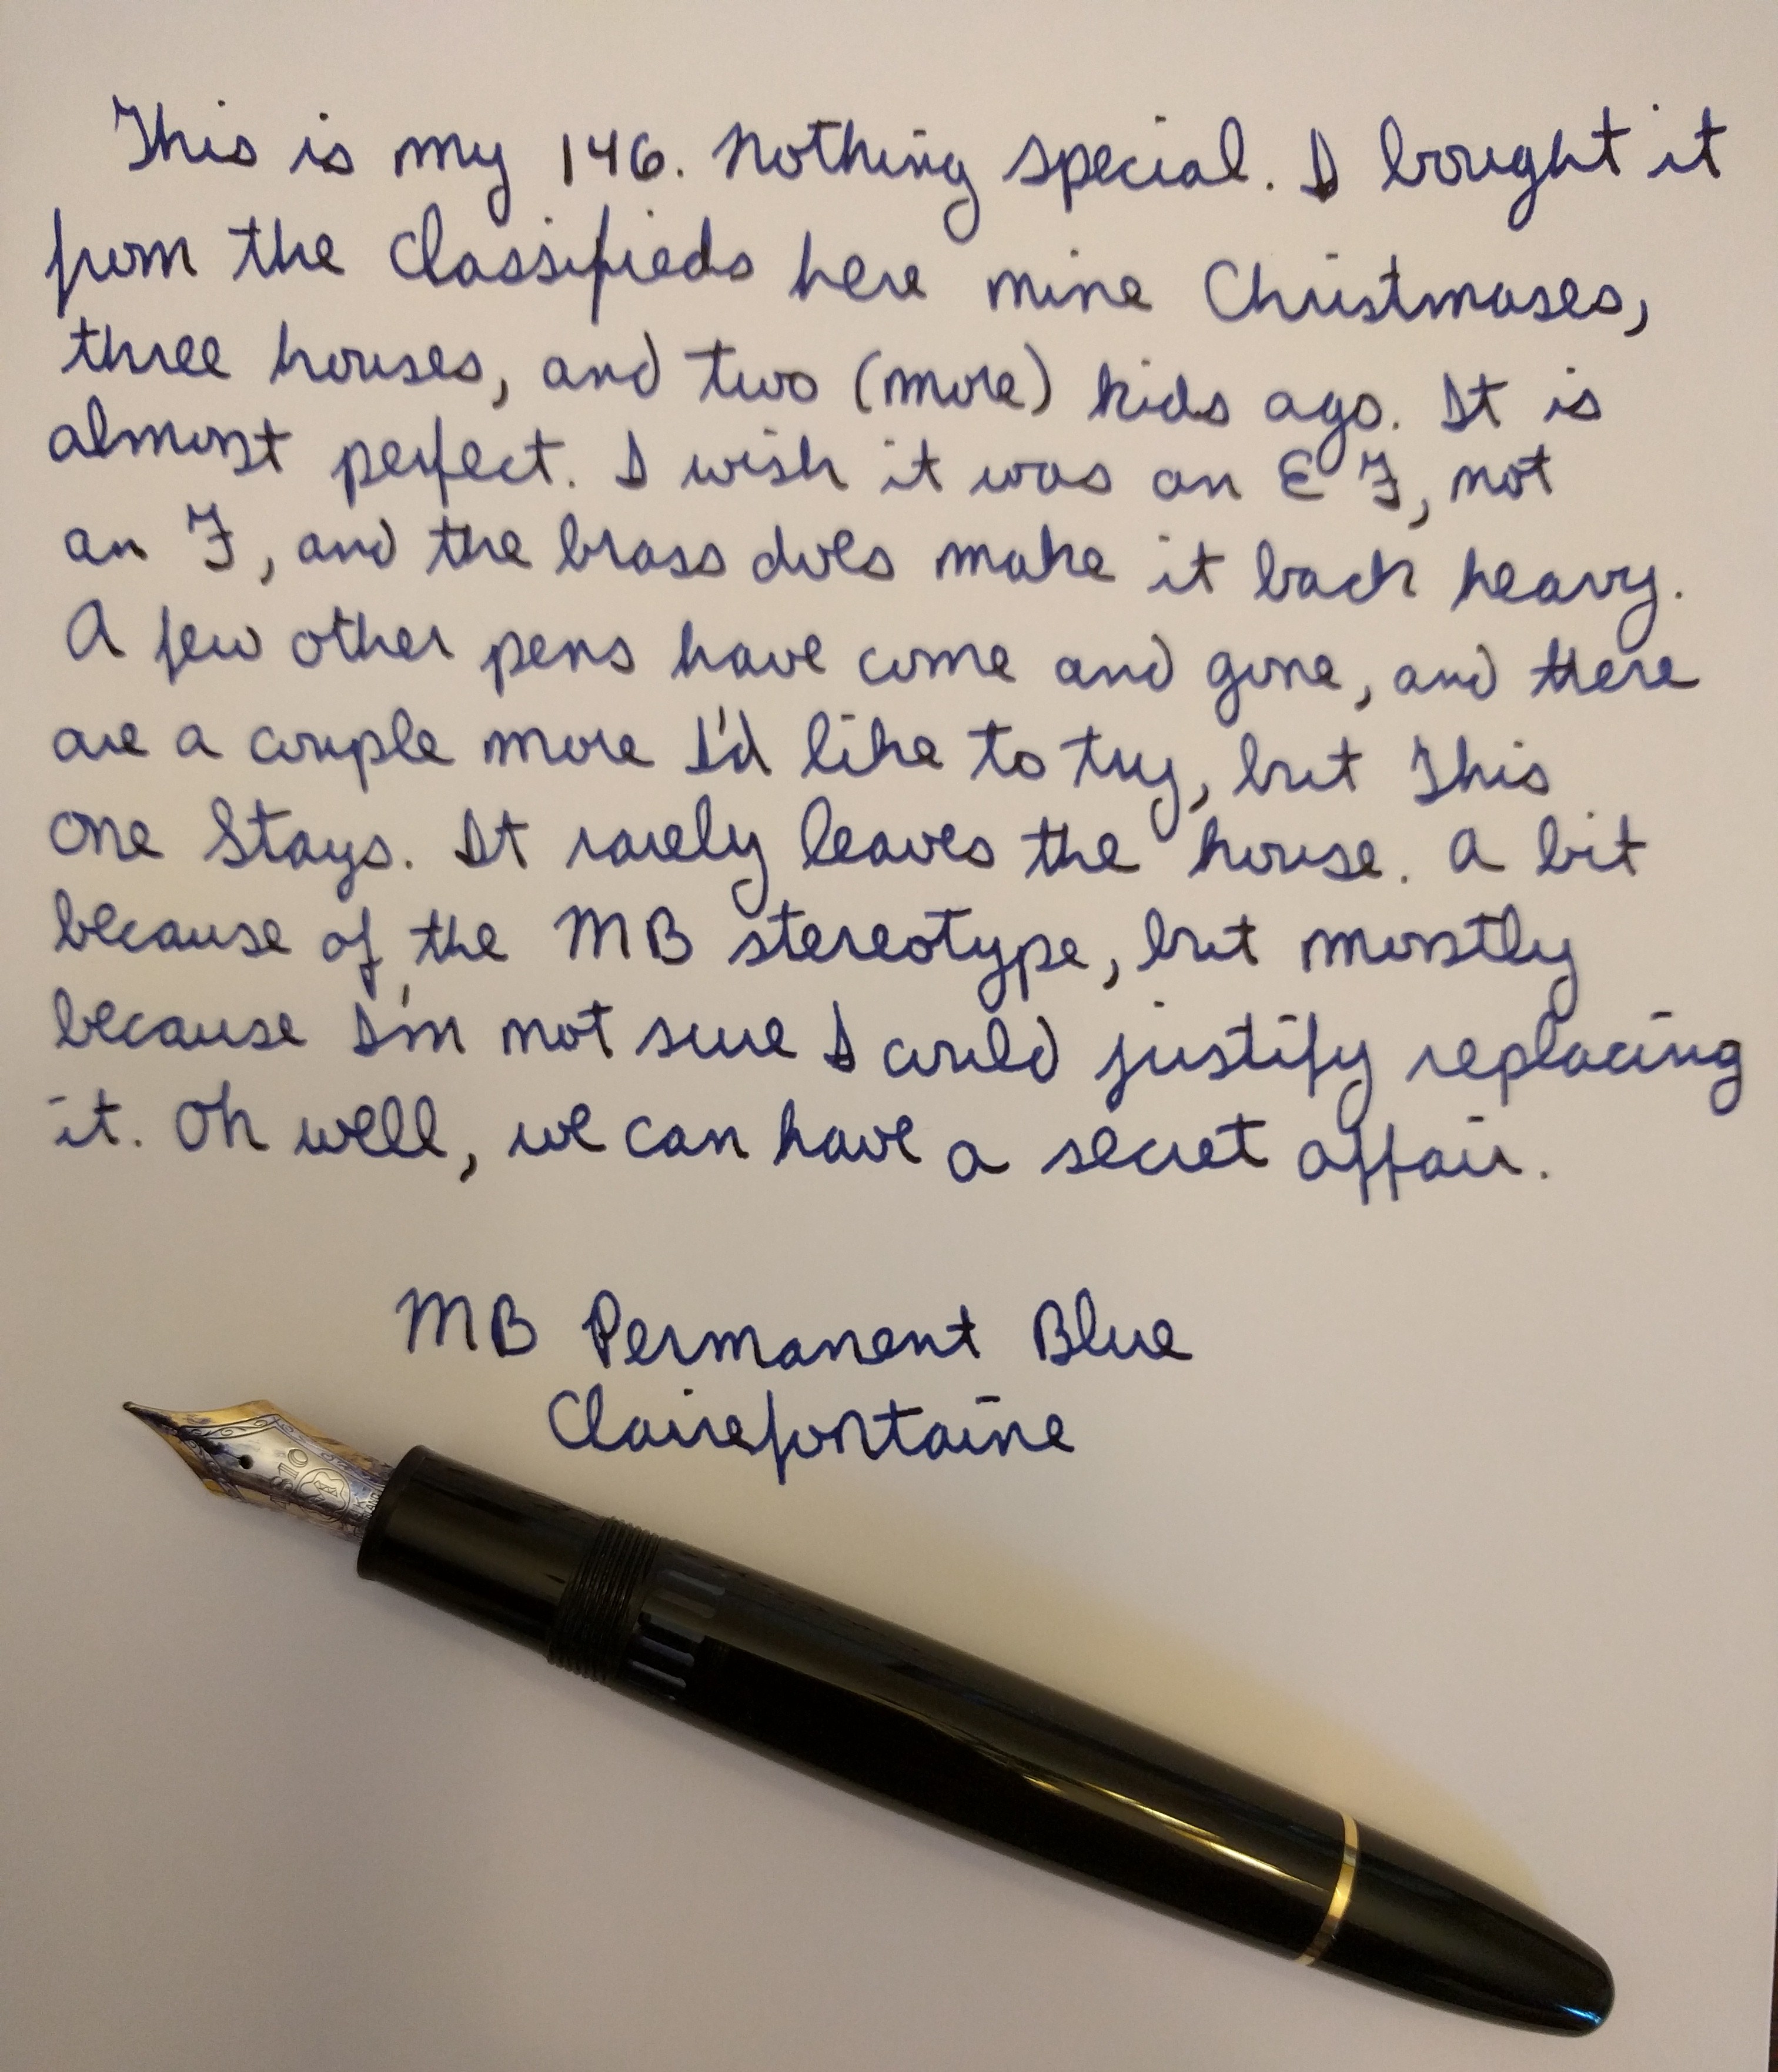 This is my 146. Nothing special. I bought it
from the classifieds here nine Christmases,
three houses, and two (more) kids ago. It is
almost perfect. I wish it was an EF, not
an F, and the brass does make it back heavy.
A few other pens have come and gone, and there
are a couple more I'd like to try, but This
one Stays. It rarely leaves the house. A bit
because of the MB stereotype, but mostly
because I'm not sure I could justify replacing
it. Oh well, we can have a secret affair.
MB Permanent Blue
Clairefontaine